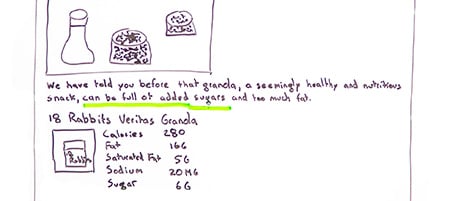 We have told you before that granola, a seemingly healthy and nutritious
snack, can be full of added sugars and too much fat.
18 Rabbits Veritas Granola
Calories 280
Fat 16G
Saturated Fat 5G
Sodium 20MG
Sugar 6G